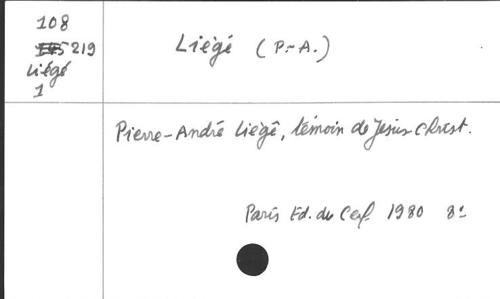 108
219
Liégé
1
Liégé (P.-A.)
Pierre-André Liégé, témoin de Jésus Christ.
Paris Ed. du Cerf. 1980 8°